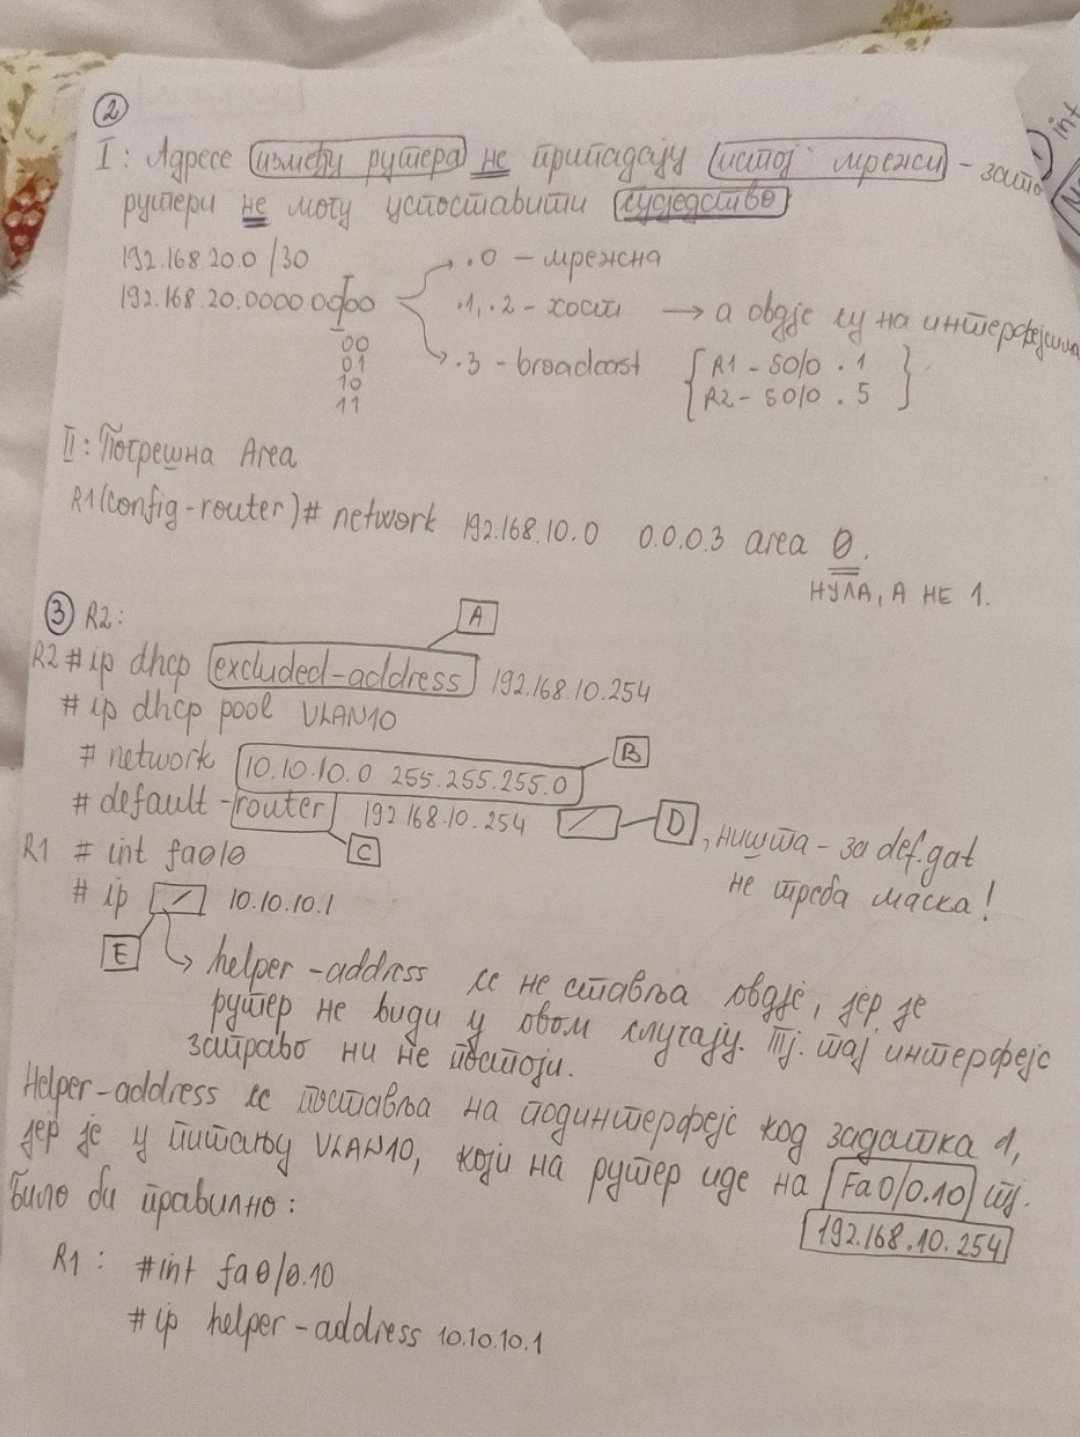 ②
I: Адресе између рутера не припадају истој мрежи - зато
рутери не могу успоставити сусједство
192.168.20.0 /30
192.168.20.00000000
.0 - мрежна
.1, .2 - хост → а овдје су на интерфејсима
.3 - broadcast
R1 - S0/0 .1
R2 - S0/0 .5
00
01
10
11
II: Погрешна Area
R1(config-router)# network 192.168.10.0 0.0.0.3 area 0.
НУЛА, А НЕ 1.
③ R2:
A
R2 # ip dhcp excluded-address 192.168.10.254
# ip dhcp pool VLAN10
B
# network 10.10.10.0 255.255.255.0
# default-router 192.168.10.254 / D, ништа - за def.gat
не треба маска!
C
R1 # int fa0/0
# ip / 10.10.10.1
E
→ helper-address се не ставља овдје, јер је
рутер не види у овом случају. Тј. тај интерфејс
заправо ни не постоји.
Helper-address се поставља на подинтерфејс код задатка 1,
јер је у питању VLAN10, који на рутер иде на Fa0/0.10 тј.
192.168.10.254
Било би правилно:
R1: #int fa0/0.10
# ip helper-address 10.10.10.1
int